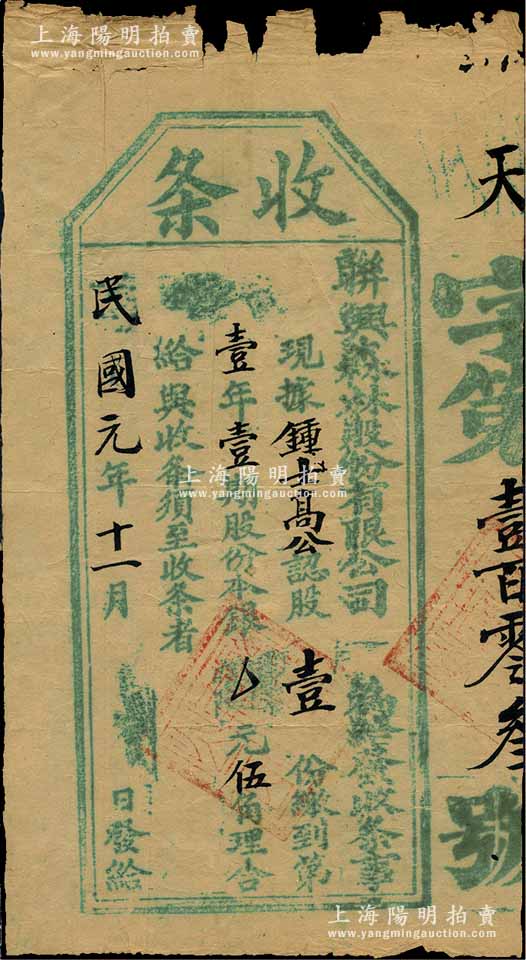 上海陽明拍賣
www.yangmingauction.com
天
字第
壹百零叁
號
收条
聯興森林股份有限公司
發給收条事
現據鍾士高公認股壹份繳到第
壹年壹期股份本銀元伍角理合
給與收管須至收条者
民國元年十一月
日發給
上海陽明拍賣
www.yangmingauction.com
上海陽明拍賣
www.yangmingauction.com